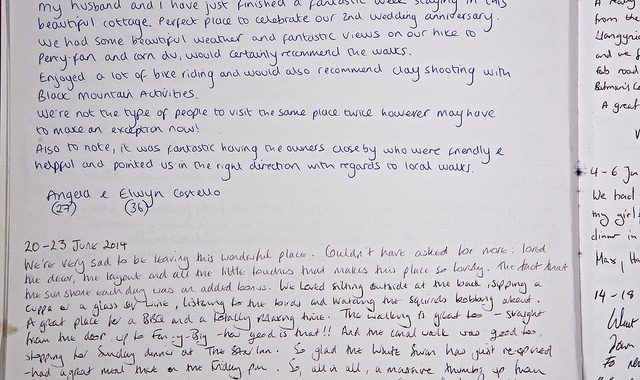 my husband and I have just finished a fantastic week staying in this
beautiful cottage. Perfect place to celebrate our 2nd wedding anniversary.
We had some beautiful weather and fantastic views on our hike to
Pen-y-fan and corn du, would certainly recommend the walks.
Enjoyed a lot of bike riding and would also recommend clay shooting with
Black Mountain Activities.
We're not the type of people to visit the same place twice however may have
to make an exception now!
Also to note, it was fantastic having the owners close by who were friendly &
helpful and pointed us in the right direction with regards to local walks.
Angela & Elwyn Costello
(27) (36)
20-23 JUNE 2014
We're very sad to be leaving this wonderful place. Couldn't have asked for more: loved
the decor, the layout and all the little touches that makes this place so lovely. The fact that
the sun shone each day was an added bonus. We loved sitting outside at the back, sipping a
cuppa or a glass of wine, listening to the birds and watching the squirrels bobbing about.
A great place for a BBQ and a totally relaxing time. The walking is great too - straight
from the door, up to Fan-y-Big - how good is that!! And the canal walk was good too,
stopping for Sunday dinner at The Star Inn. So glad the White Swan has just re-opened
- had a great meal there on the Friday pm. So, all in all, a massive thumbs up from
A
from the
Llangynid
and we
fab road
Batman's Ca
A great
4-6 Ju
We had
my girl
dinner in
Max, Ha
14-18
What